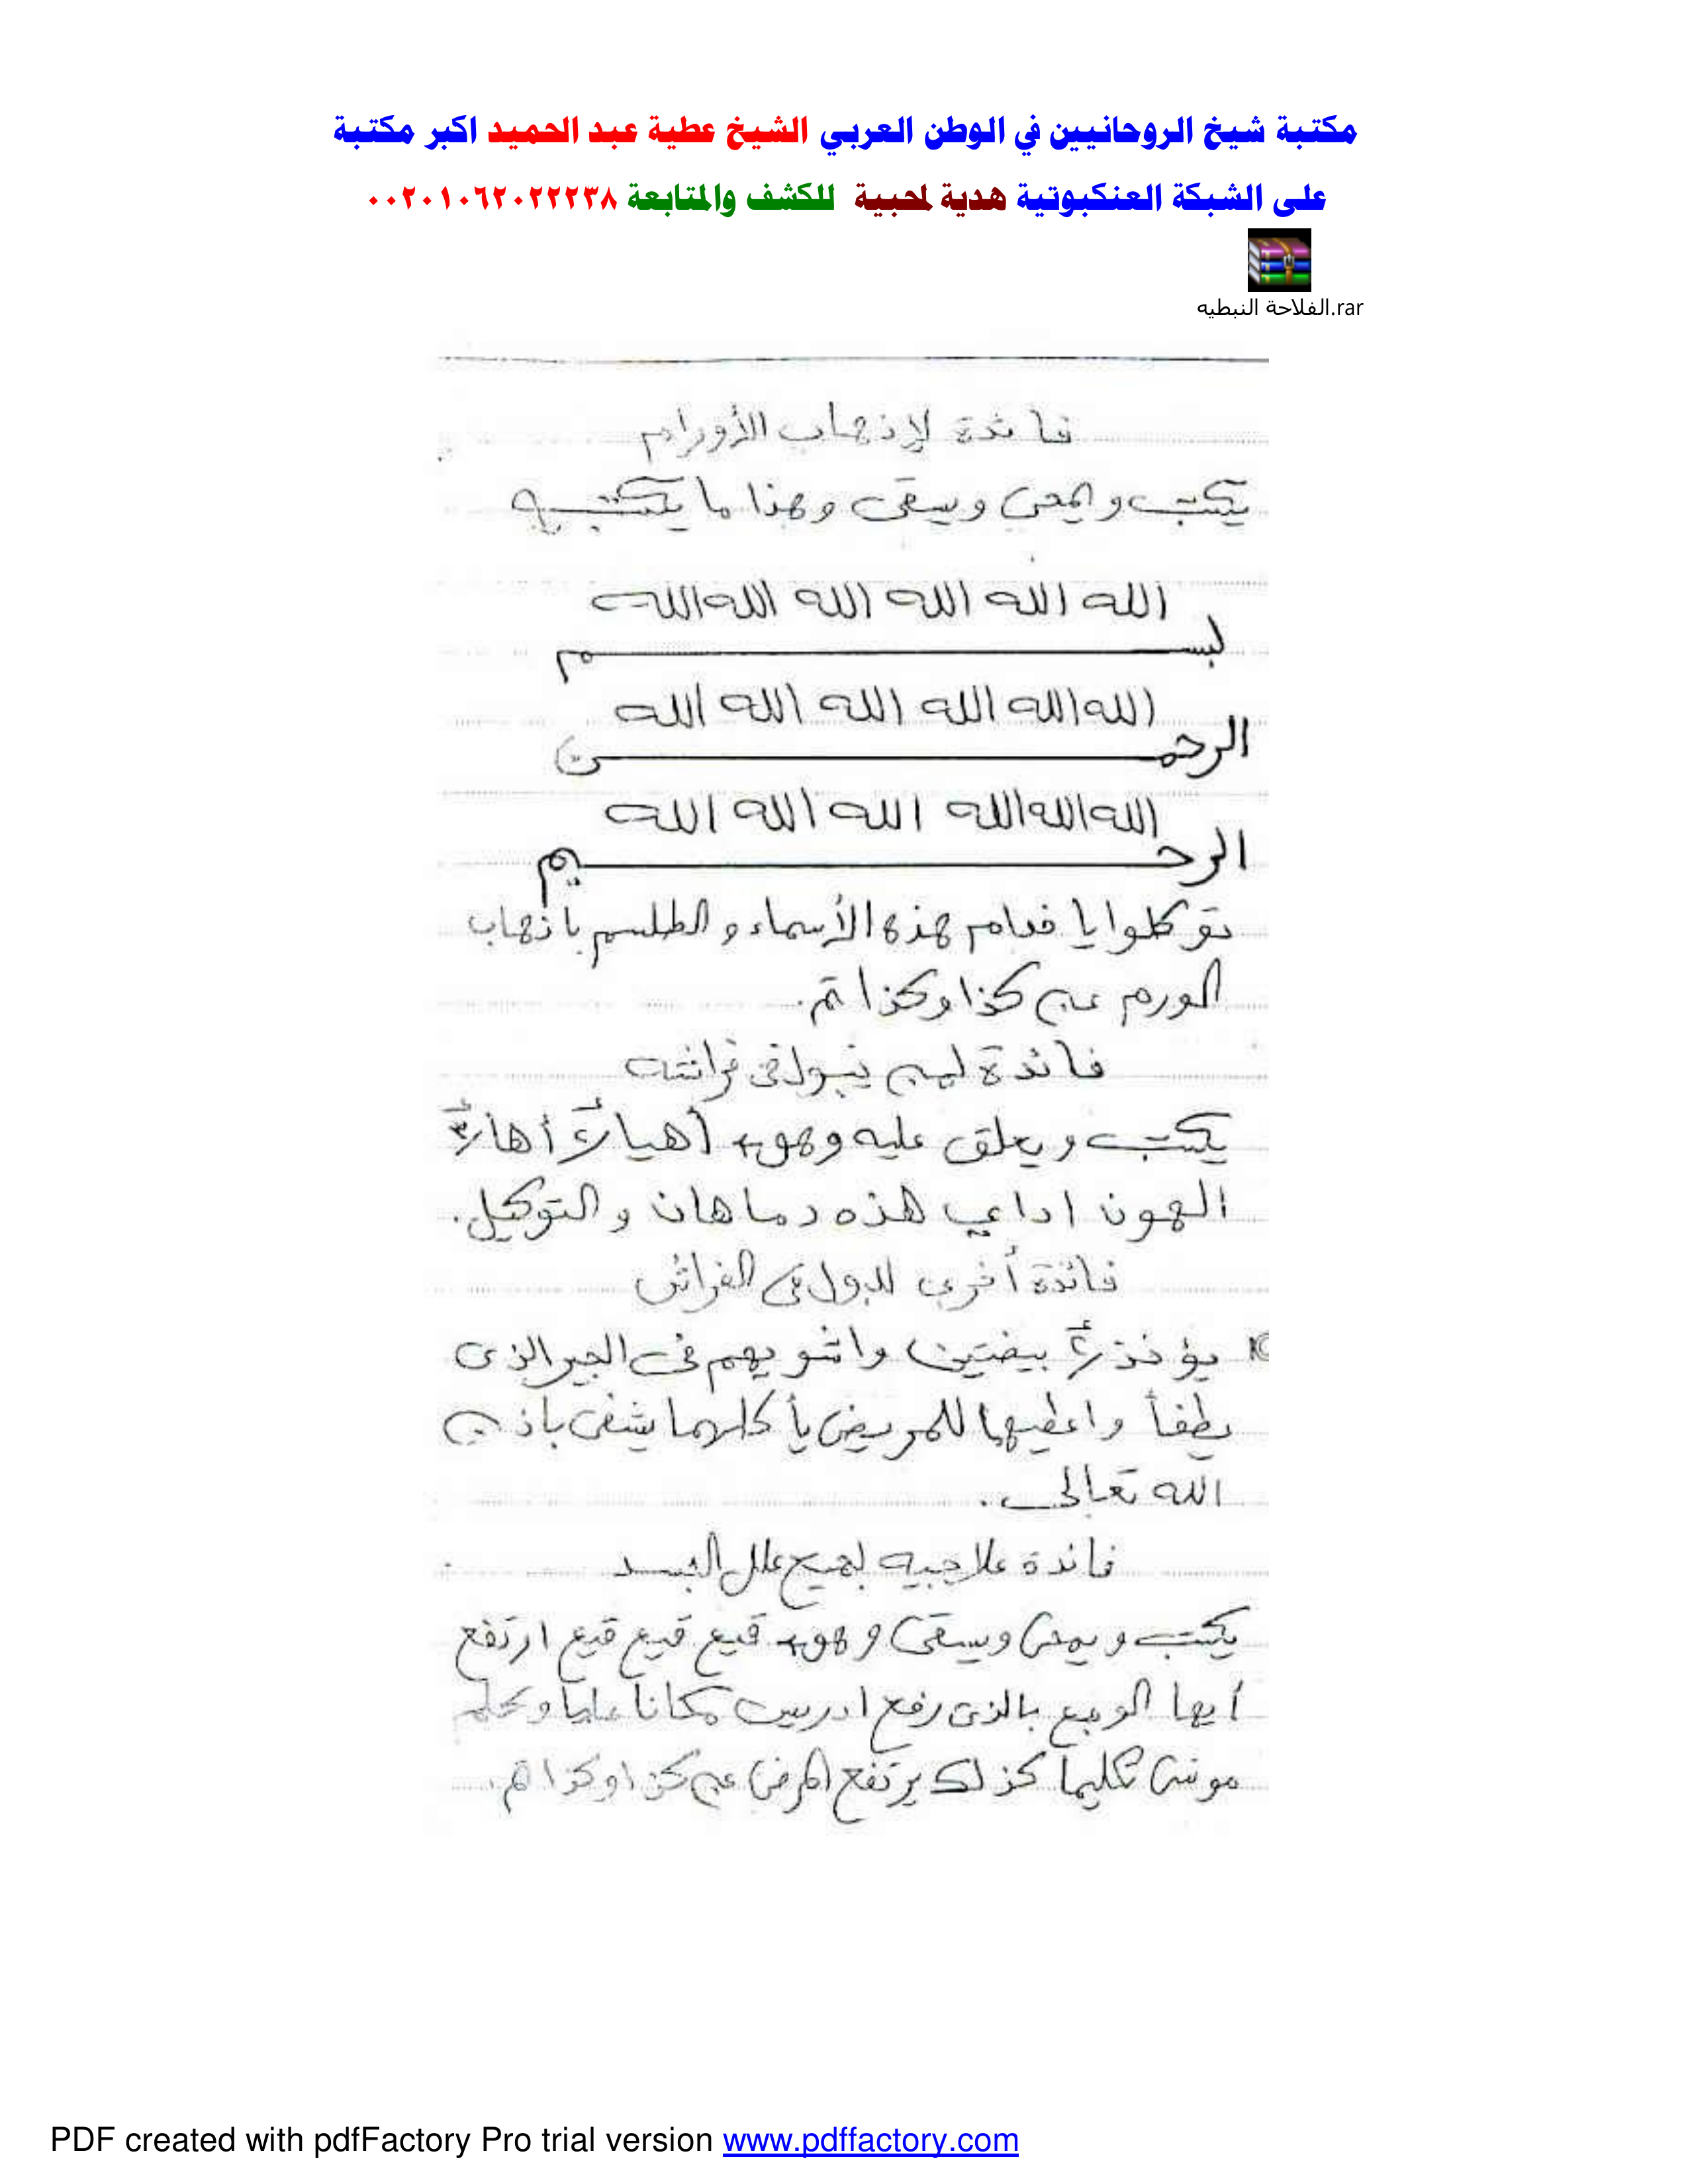 مكتبة شيخ الروحانيين في الوطن العربي الشيخ عطية عبد الحميد اكبر مكتبة
على الشبكة العنكبوتية هدية لمحبية للكشف والمتابعة ٠٠٢٠١٠٦٢٠٢٢٢٣٨
الفلاحة النبطيه.rar
فائدة لإذهاب الأورام
يكتب ويمحى ويسقى وهذا ما يكتب به
الله الله الله الله الله الله
بسم
الله الله الله الله الله الله
الرحمن
الله الله الله الله الله الله
الرحيم
توكلوا يا خدام هذه الأسماء والطلسم باذهاب
الورم عن كذا وكذا تم.
فائدة لمن يبول فى فراشه
يكتب ويعلق عليه وهو أهيا أها
الهون اداعي هذه دماهان والتوكيل.
فائدة أخرى للبول فى الفراش
يؤخذ ٢ بيضتين واشويهم فى الجير الذى
يطفأ واعطيها للمريض يأكلهما يشفى باذن
الله تعالى.
فائدة علاجيه لجميع علل الجسد
يكتب ويمحى ويسقى وهو قيع قيع قيع ارتفع
أيها الوجع بالذى رفع ادريس مكاناً علياً وكلم
موسى تكليما كذلك يرتفع المرض عن كذا وكذا تم.
PDF created with pdfFactory Pro trial version www.pdffactory.com